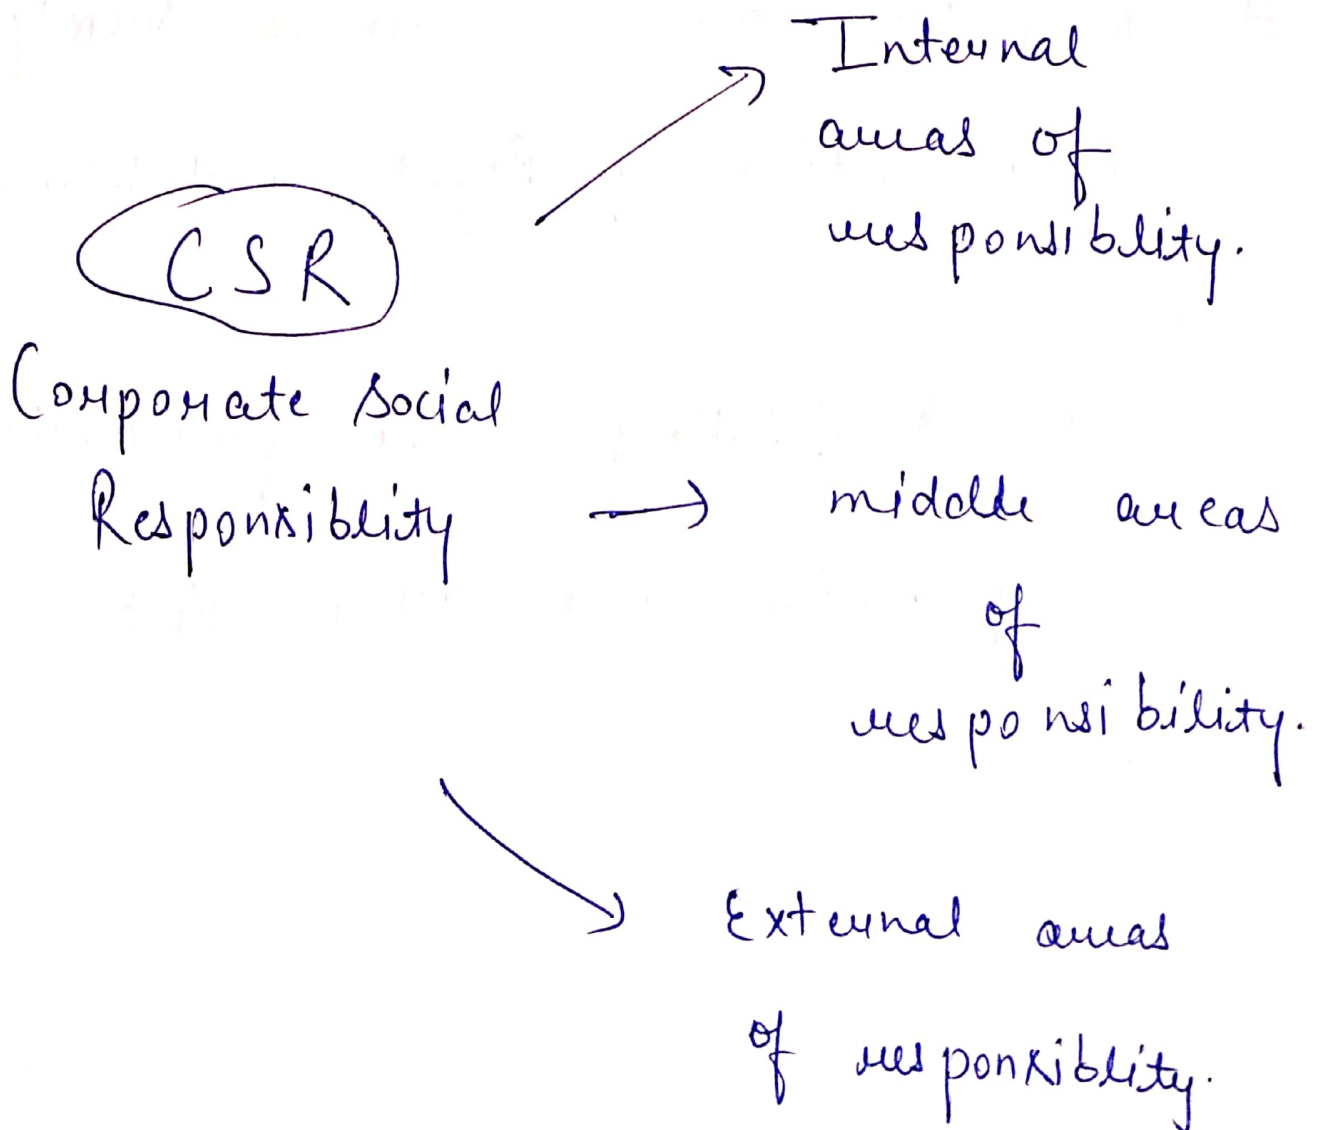 CSR
Corporate social
Responsiblity
Internal
areas of
responsiblity.
middle areas
of
responsibility.
External areas
of responsiblity.